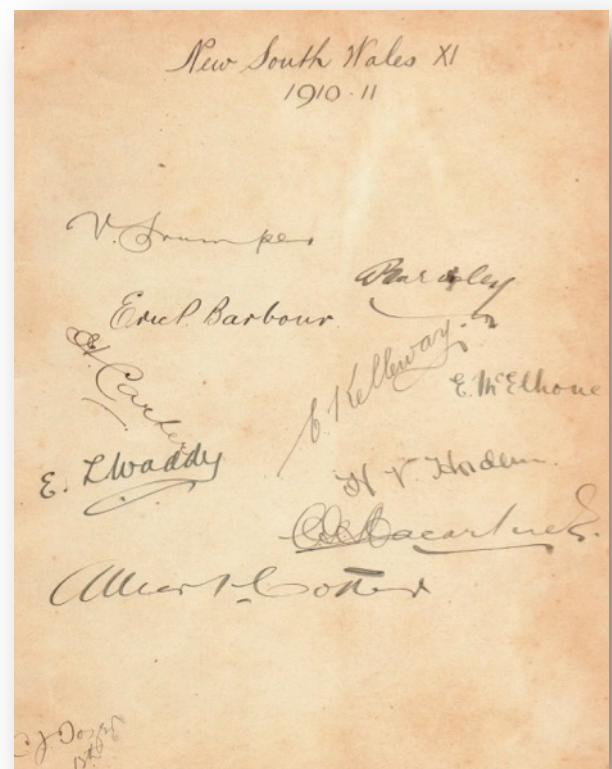 New South Wales XI
1910-11
V. Trumper
W Bardsley
Eric P. Barbour
H. Carter
C. Kelleway.
E. McElhone
E. L Waddy
H V Hordern
C G Macartney.
Albert Cotter
C. J. Tozer